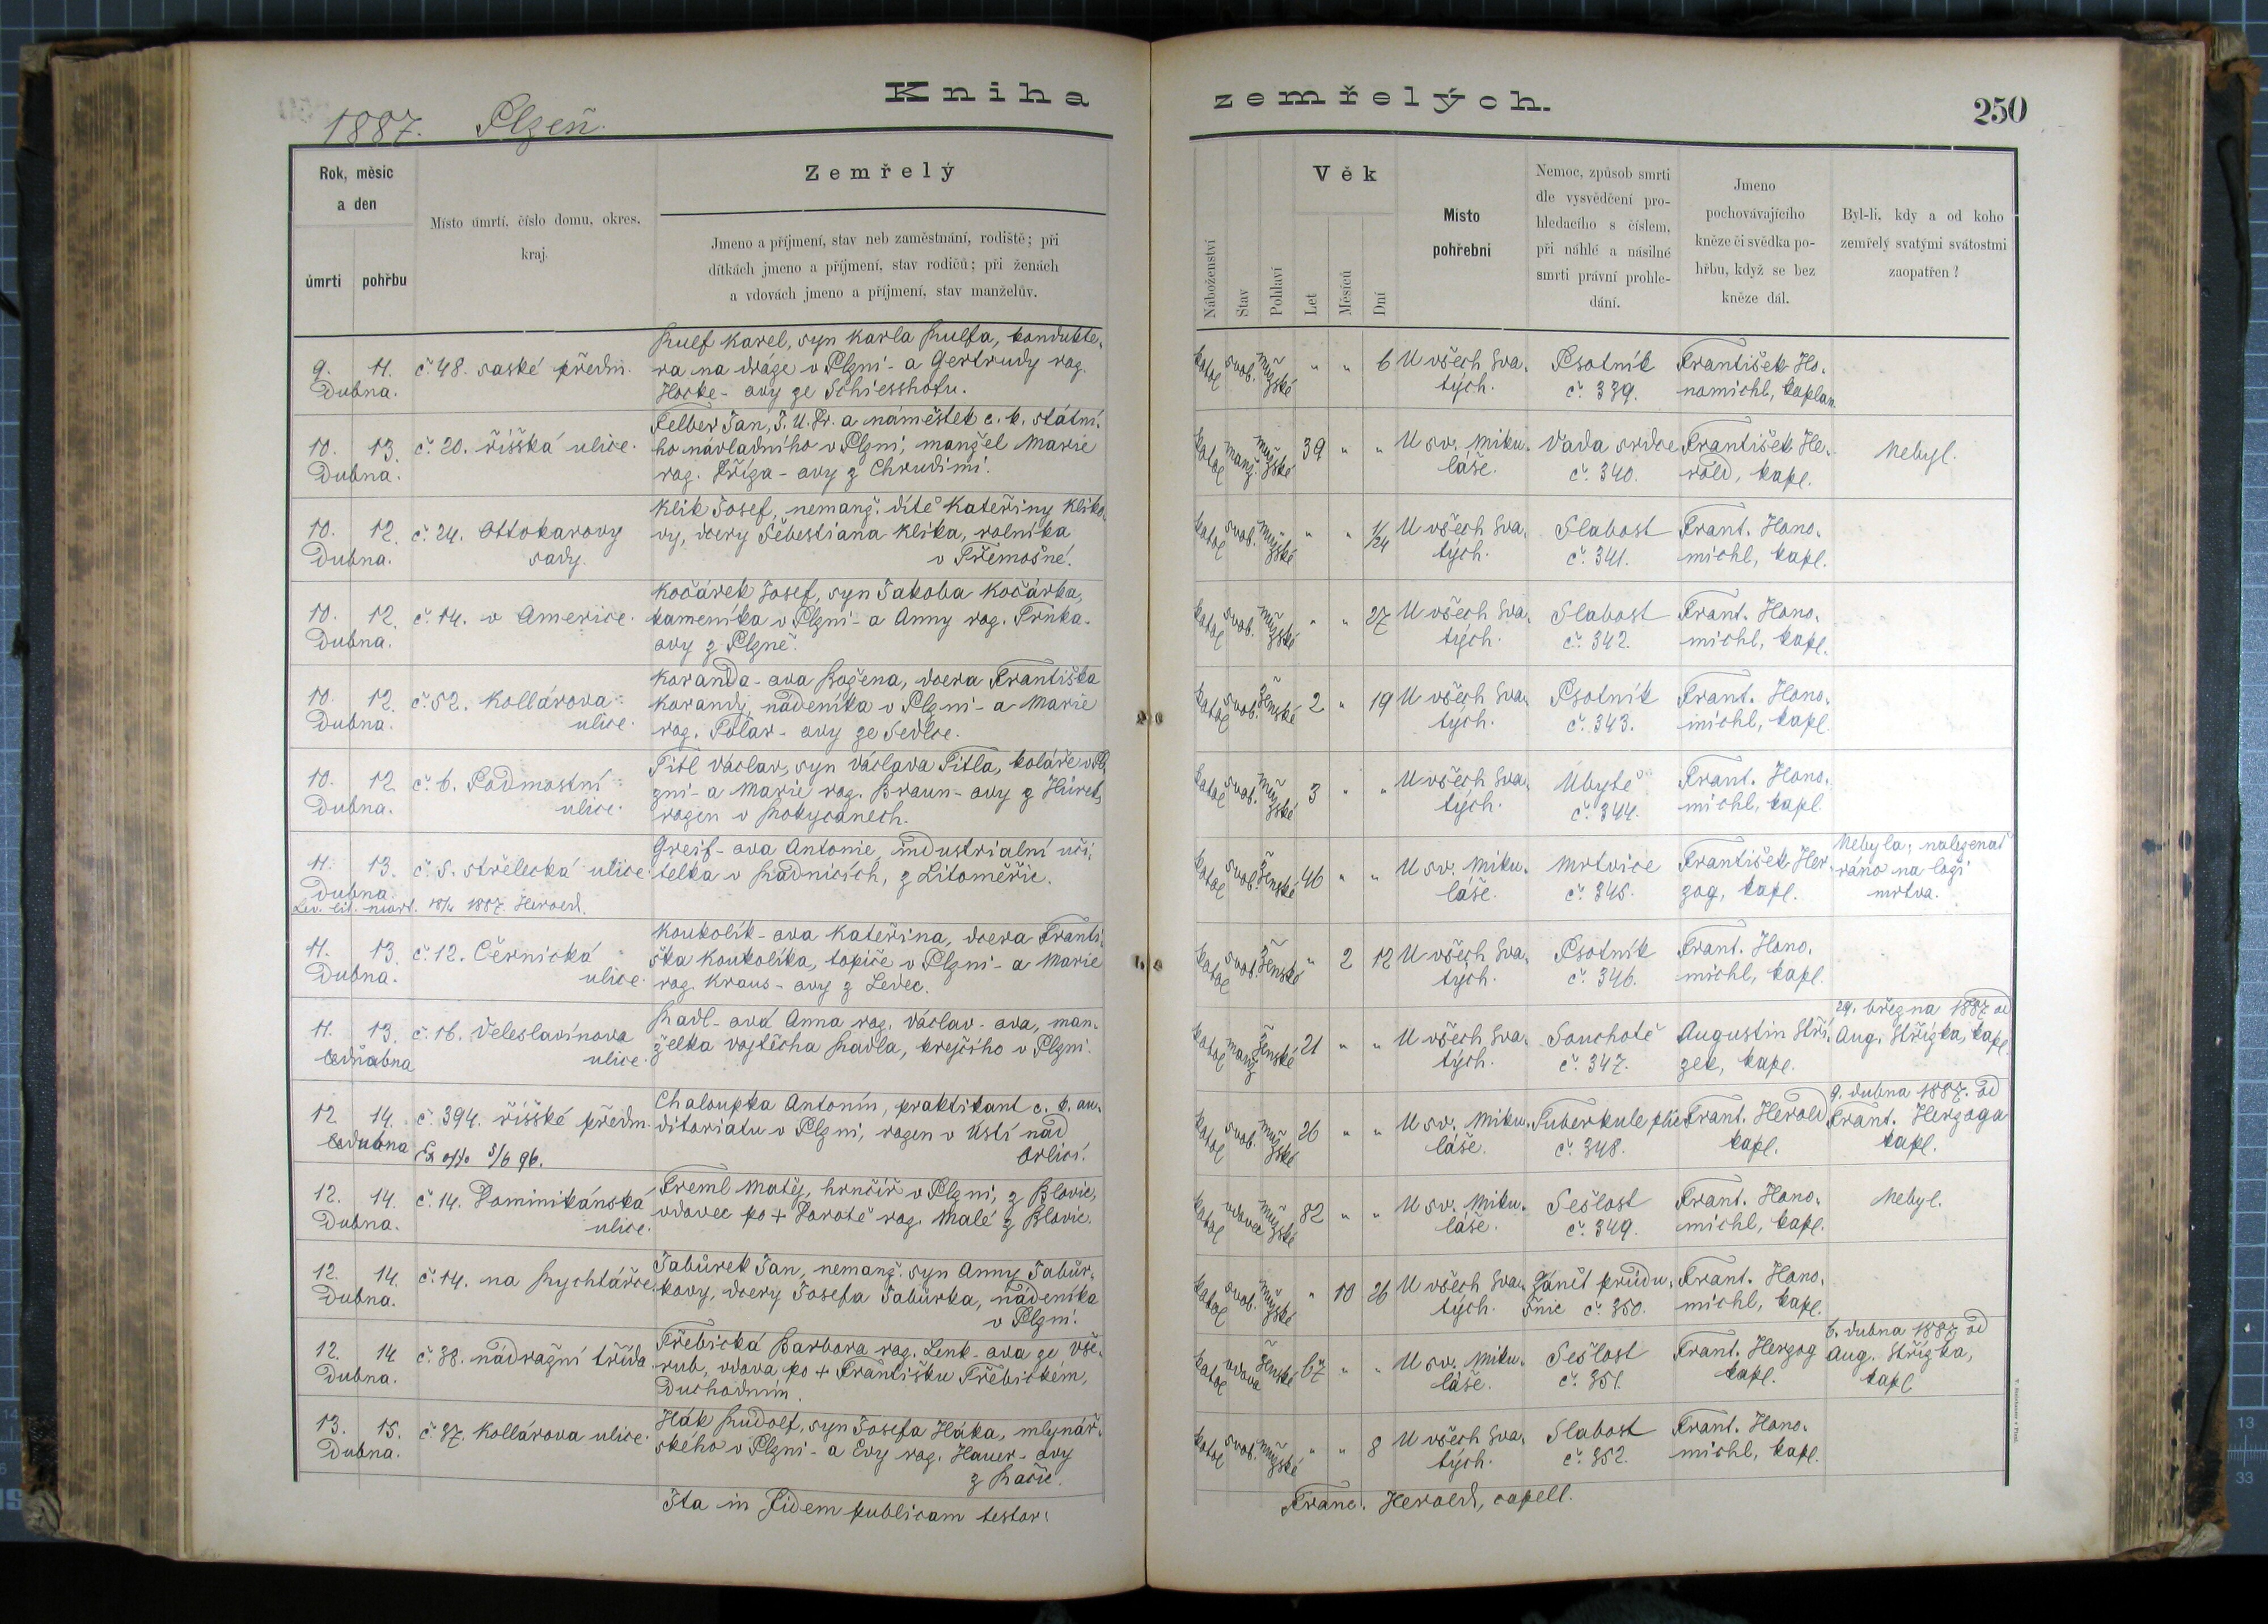 Kniha zemřelých.
250
1887. Plzeň.
Rok, měsíc
a den
úmrtí
pohřbu
Místo úmrtí, číslo domu, okres,
kraj.
Zemřelý
Jmeno a příjmení, stav neb zaměstnání, rodiště; při
dítkách jmeno a příjmení, stav rodičů; při ženách
a vdovách jmeno a příjmení, stav manželův.
Náboženství
Stav
Pohlaví
Věk
Let
Měsíců
Dní
Místo
pohřební
Nemoc, způsob smrti
dle vysvědčení pro-
hledacího s číslem,
při náhlé a násilné
smrti právní prohle-
dání.
Jmeno
pochovávajícího
kněze či svědka po-
hřbu, když se bez
kněze dál.
Byl-li, kdy a od koho
zemřelý svatými svátostmi
zaopatřen?
9. 11.
Dubna.
č. 48. saské předm.
Rulf Karel, syn Karla Rulfa, kondukte-
ra na dráze v Plzni - a Gertrudy roz.
Hocke - ovy ze Schiesshofu.
katol svob. mužské " " 6
U všech Sva-
tých.
Psotník
č. 339.
František Ho-
nomichl, kaplan.
10. 13.
Dubna.
č. 20. říšská ulice.
Felber Jan, J. U. Dr. a náměstek c. k. státní-
ho návladního v Plzni, manžel Marie
roz. Příza - ovy z Chrudimi.
katol manž. mužské 39 " "
U sv. Miku-
láše.
Vada srdce
č. 340.
František He-
rold, kapl.
Nebyl.
10. 12.
Dubna.
č. 24. Ottokarovy
sady.
Klik Josef, nemanž. dítě Kateřiny Kliko-
vy, dcery Šebestiana Klika, rolníka
v Třemošné.
katol svob. mužské " " 1/24
U všech Sva-
tých.
Slabost
č. 341.
Frant. Hono-
michl, kapl.
10. 12.
Dubna.
č. 14. v Americe.
Kočárek Josef, syn Jakoba Kočárka,
kameníka v Plzni - a Anny roz. Trnka-
ovy z Plzně.
katol svob. mužské " " 27
U všech Sva-
tých.
Slabost
č. 342.
Frant. Hono-
michl, kapl.
10. 12.
Dubna.
č. 52. Kollárova
ulice.
Koranda - ova Božena, dcera Františka
Korandy, nádeníka v Plzni - a Marie
roz. Polar - ovy ze Sedlce.
katol svob. ženské 2 " 19
U všech Sva-
tých.
Psotník
č. 343.
Frant. Hono-
michl, kapl.
10. 12
Dubna.
č. 6. Podmostní
ulice.
Titl Václav, syn Václava Titla, koláře v Pl-
zni - a Marie roz. Braun - ovy z Hůrek,
rozen v Rokycanech.
katol svob. mužské 3 " "
U všech Sva-
tých.
Úbytě
č. 344.
Frant. Hono-
michl, kapl.
11. 13.
Dubna.
č. 5. střelecká ulice.
Greif - ova Antonie, industrialní uči-
telka v Radnicích, z Litoměřic.
Lev. lit. mort. 18/4 1887. Herold.
katol svob. ženské 46 " "
U sv. Miku-
láše.
Mrtvice
č. 345.
František Her-
zog, kapl.
Nebyla; nalezenať
ráno na loži
mrtva.
11. 13.
Dubna.
č. 12. Černická
ulice.
Koukolík - ova Kateřina, dcera Franti-
ška Koukolíka, topiče v Plzni - a Marie
roz. Kraus - ovy z Ledec.
katol svob. ženské " 2 12
U všech Sva-
tých.
Psotník
č. 346.
Frant. Hono-
michl, kapl.
11. 13.
Dubna
č. 16. Veleslavínova
ulice.
Radl - ová Anna roz. Václav - ova, man-
želka Vojtěcha Radla, krejčího v Plzni.
katol manž ženské 21 " "
U všech Sva-
tých.
Souchotě
č. 347.
Augustin Stří-
zek, kapl.
24. března 1887 od
Aug. Střízka, kapl.
12 14.
dubna
č. 394. říšské předm.
Ex offo 5/6 96.
Chaloupka Antonín, praktikant c. k. au-
ditoriatu v Plzni, rozen v Ústí nad
Orlicí.
katol svob. mužské 26 " "
U sv. Miku-
láše.
Tuberkule plic
č. 348.
Frant. Herold
kapl.
9. dubna 1887. od
Frant. Herzoga
kapl.
12. 14.
Dubna.
č. 14. Dominikánská
ulice.
Treml Matěj, hrnčíř v Plzni, z Blovic,
vdovec po + Dorotě roz. Malé z Blovic.
katol vdovec mužské 82 " "
U sv. Miku-
láše.
Sešlost
č. 349.
Frant. Hono-
michl, kapl.
Nebyl.
12. 14.
Dubna.
č. 14. na Rychtářce.
Tabůrek Jan, nemanž. syn Anny Tabůr-
kovy, dcery Josefa Tabůrka, nádeníka
v Plzni.
katol svob. mužské " 10 26
U všech Sva-
tých.
Zánět průdu-
šnic č. 350.
Frant. Hono-
michl, kapl.
12. 14
Dubna.
č. 38. nádražní třída
Třebická Barbora roz. Lenk - ova ze Vše-
rub, vdova po + Františku Třebickém,
Duchodním.
katol vdova ženské 67 " "
U sv. Miku-
láše.
Sešlost
č. 351.
Frant. Herzog
kapl.
6. dubna 1887 od
Aug. Střízka,
kapl
13. 15.
Dubna.
č. 37. Kollárova ulice.
Hák Rudolf, syn Josefa Háka, mlynář-
ského v Plzni - a Evy roz. Hauer - ovy
z Račic.
katol svob. mužské " " 8
U všech Sva-
tých.
Slabost
č. 352.
Frant. Hono-
michl, kapl.
Ita in fidem publicam testor:
Franc. Herold, capell.